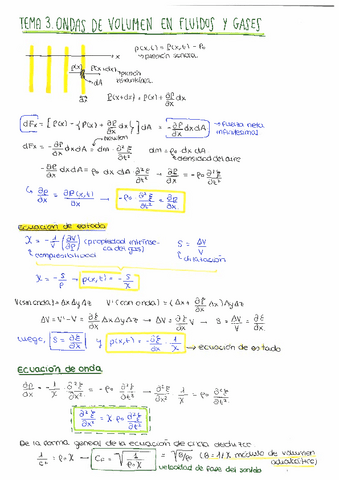 TEMA 3. ONDAS DE VOLUMEN EN FLUIDOS Y GASES
p(x,t) = P(x,t) - P₀
↳ presión sonora
x
P(x) P(x+dx) → presión instantánea
dA
P(x+dx) = P(x) + ∂P/∂x dx
dFx = [P(x) - {P(x) + ∂P/∂x dx}] dA = -∂P/∂x dx dA → fuerza neta infinitesimal
dFx = -∂P/∂x dx dA = dm · ∂²ξ/∂t² dm = ρ₀ dx dA
↳ Newton ↳ densidad del aire
-∂P/∂x dx dA = ρ₀ dx dA ∂²ξ/∂t² → ∂P/∂x = -ρ₀ ∂²ξ/∂t²
↳ ∂P/∂x = ∂P(x,t)/∂x → -ρ₀ · ∂²ξ/∂t² = ∂p/∂x
Ecuación de estado
X = -1/V (∂V/∂p) (propiedad intrínseca del gas) S = ΔV/V
↳ compresibilidad ↳ dilatación
X = -S/p → p(x,t) = -S/X
V(sin onda) = Δx Δy Δz V'(con onda) = (Δx + ∂ξ/∂x Δx) Δy Δz
ΔV = V' - V = ∂ξ/∂x Δx Δy Δz → ΔV = ∂ξ/∂x V → S = ΔV/V = ∂ξ/∂x
Luego, S = ∂ξ/∂x y p(x,t) = -∂ξ/∂x · 1/X → ecuación de estado
Ecuación de onda
∂p/∂x = -1/X ∂²ξ/∂x² = -ρ₀ ∂²ξ/∂t² → ∂²ξ/∂x² 1/X = ρ₀ ∂²ξ/∂t²
∂²ξ/∂x² = X ρ₀ ∂²ξ/∂t²
De la forma general de la ecuación de onda deduzco
1/c² = ρ₀ X → c₀ = √(1/ρ₀X) = √(B/ρ₀) (B = 1/X módulo de volumen adiabático)
velocidad de fase del sonido